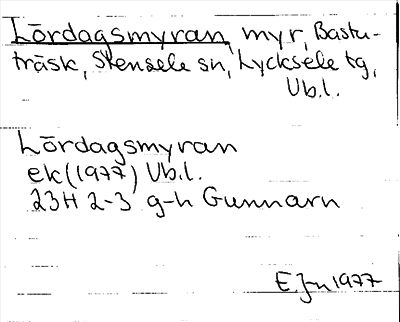 Lördagsmyran, myr, Bastu-
träsk, Stensele sn, Lycksele tg,
Vb.l.
Lördagsmyran
ek (1977) Vb.l.
23H 2-3 g-h Gunnarn
E.Jn 1977